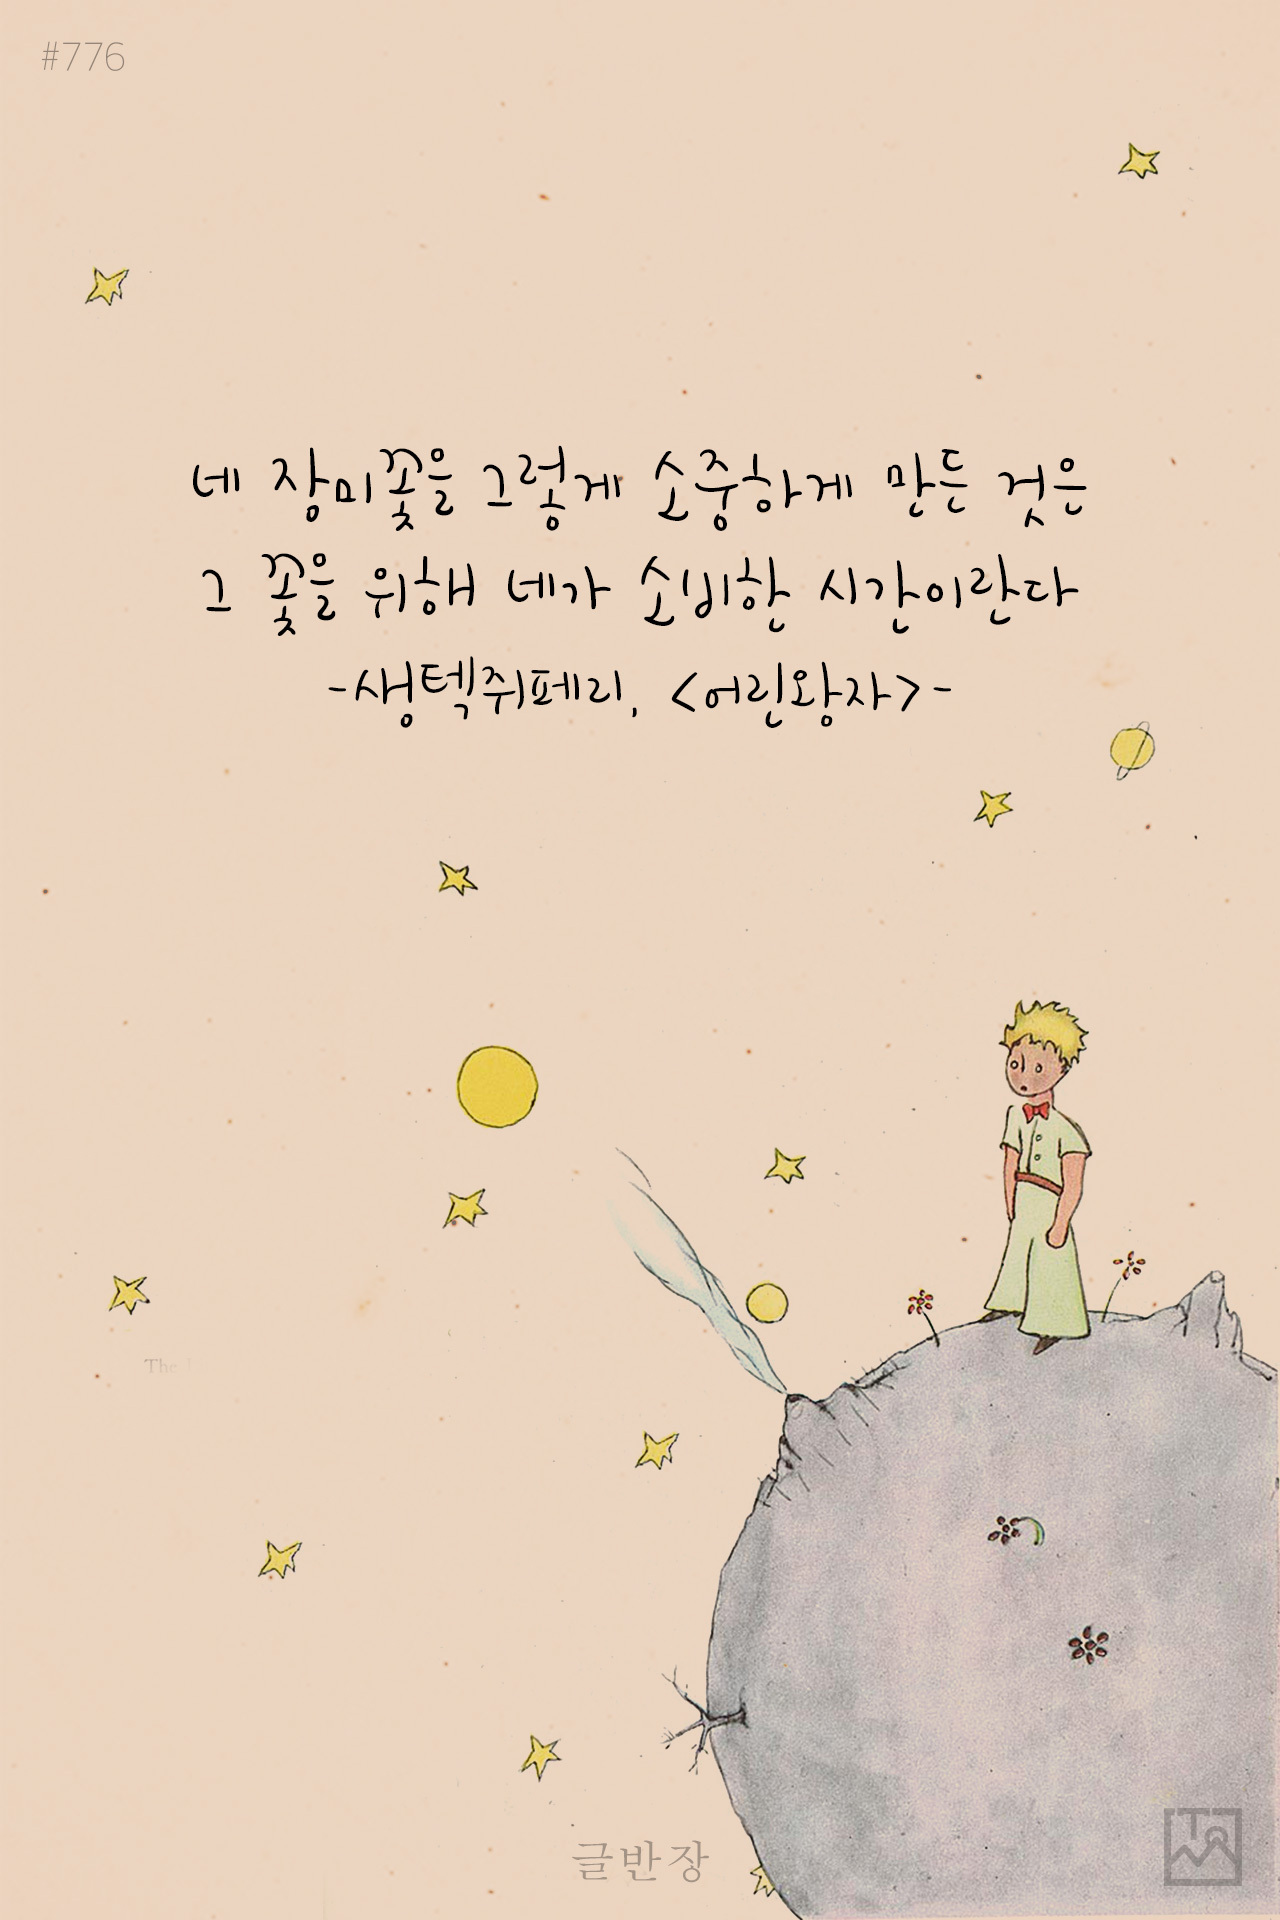 #776
네 장미꽃을 그렇게 소중하게 만든 것은
그 꽃을 위해 네가 소비한 시간이란다
-생텍쥐페리, <어린왕자>-
The
글반장